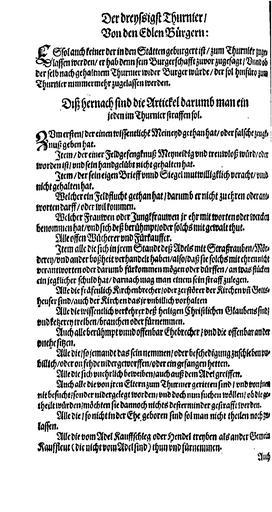 Der dreyssigst Thurnier/
Von den Edlen Bürgern:
ES sol auch keiner der in den Stätten geburgert ist/ zum Thurnier zuge
lassen werden/ er hab denn sein Bürgerschafft zuvor auffgesagt/ Vnd ob
der selb nach gehaltnem Thurnier wider Burger würde/ der sol hinfüro zum
Thurnier nimmermehr zugelassen werden.
Diß hernach sind die Artickel darumb man ein
jeden im Thurnier straffen sol.
ZVm ersten/ der einen wissentlichē Meineyd gethan hat/ oder falsche zeug
nuß geben hat.
Item/ der einer Feldgefengknuß Meyneidig vnd trewloß würd/ oder
worden ist/ vnd sein handgelübt nicht gehalten hat.
Item/ der sein eigen Brieff vnnd Siegel mutwilligklich veracht/ vnd
nicht gehalten hat.
Welcher ein Feldflucht gethan hat/ darumb er nicht zu ehren oder ant-
worten darff/ oder wil kommen.
Welcher Frauwen oder Jungkfrauwen jr ehr mit worten oder wercken
benommen hat/ vnd sich deß berühmpt/ oder solchs mit gewalt thut.
Alle offen Wücherer vnnd Fürkauffer.
Item alle die sich in jrem Stand deß Adels mit Straßrauben/ Mör-
derey/ vnd ander boßheit verhandelt haben/ also/ daß sie solchs mit ehrn nicht
verantworten oder darumb fürkommen mögen oder dürffen/ an was stücken
ein jeglicher schuld hat/ darnach mag man einem sein straff zulegen.
Alle die so fräfenlich Kirchenbrecher/ oder zerstörer der Kirchen vñ Gotts
heuser sind/ auch der Kirchen das jr vnbillich vorhalten
Alle die wissentlich verkehrer deß heiligen Christlichen Glaubens sind/
vnd ketzerey treiben/ brauchen oder fürnemmen.
Auch alle berühmpt vnnd offenbar Ehebrecher/ vnd die offenbar an der
vnehe sitzen.
Alle die/ so jemandt das sein nemmen/ oder beschedigung zuschieben vn-
billich/ oder on fehde nidergeworffen/ oder eingefangen hetten.
Alle die sich vnehrlich beweiben/ auch auß dem Adel greiffen.
Auch alle die von jren Eltern zum Thurnier geritten sind/ vnd von jnen
nit besucht/ sonder nidergelegt worden/ vnd doch nun suchen wöllen/ ob die ge-
theilt würden/ möchten sie dannoch nichts desterminder gestrafft werden.
Alle die/ so nicht in der Ehe geboren sind sol man nicht theilen noch zu-
lassen.
Alle die vom Adel Kauffschleg oder Hendel treyben als ander Gemein
Kauffleut (die nicht vom Adel sind) thun vnd fürnemmen.
Auch